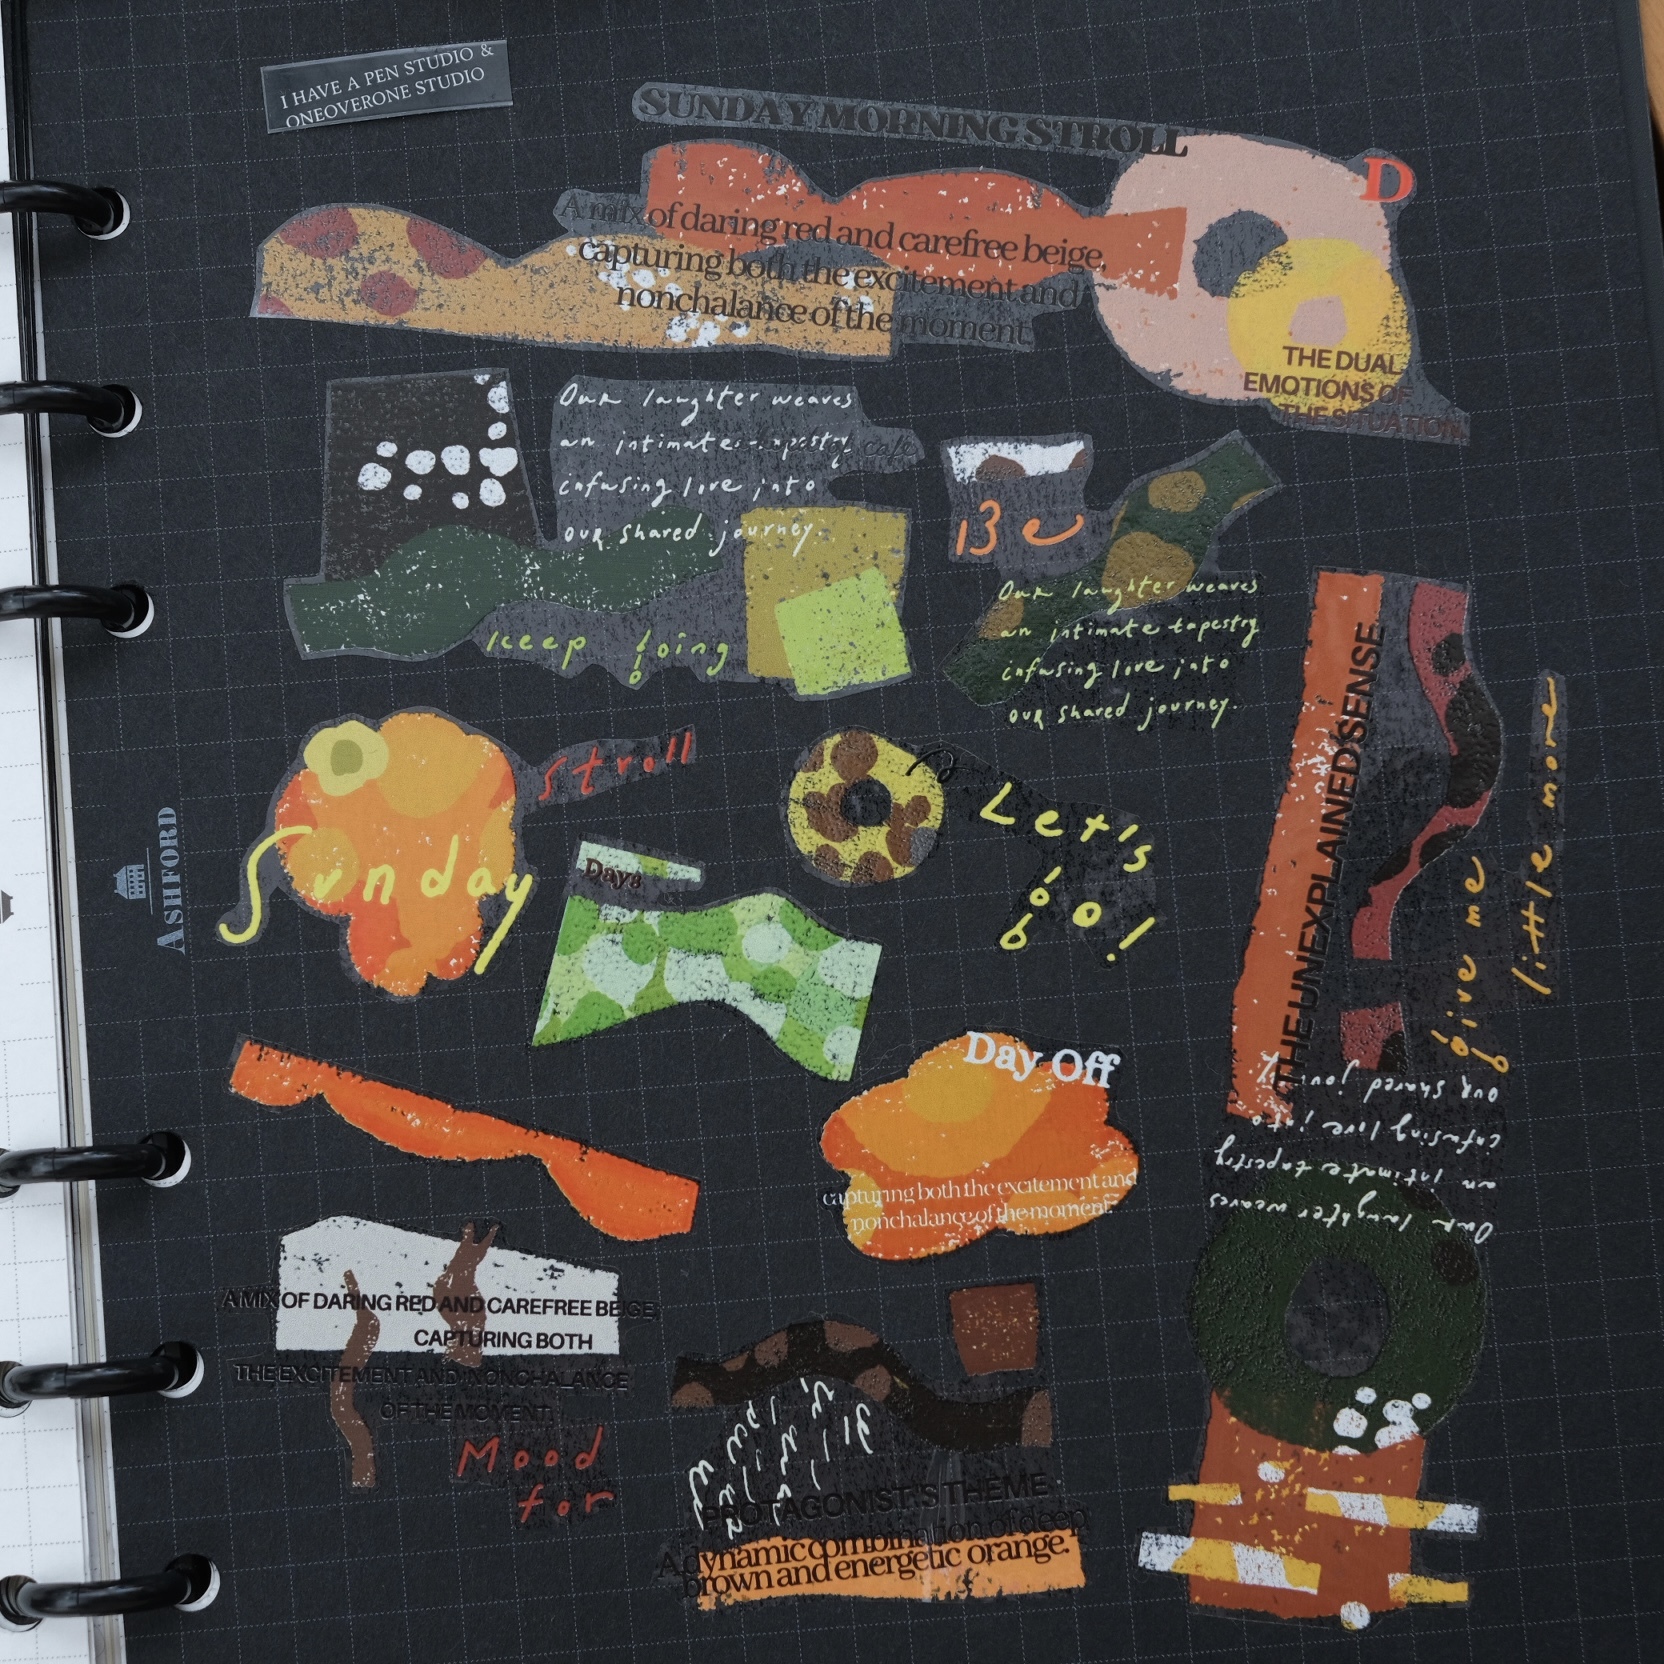 I HAVE A PEN STUDIO &
ONEOVERONE STUDIO
SUNDAY MORNING STROLL
D
A mix of daring red and carefree beige,
capturing both the excitement and
nonchalance of the moment.
THE DUAL
EMOTIONS OF
THE SITUATION.
Our laughter weaves
an intimate tapestry
infusing love into
our shared journey.
cafe
keep going
Be
Our laughter weaves
an intimate tapestry
infusing love into
our shared journey.
THE UNEXPLAINED SENSE
give me
little more
Stroll
Sunday
Days
Let's
go!
ASHFORD
Day Off
capturing both the excitement and
nonchalance of the moment.
Our laughter weaves
an intimate tapestry
infusing love into
our shared journey.
A MIX OF DARING RED AND CAREFREE BEIGE,
CAPTURING BOTH
THE EXCITEMENT AND NONCHALANCE
OF THE MOMENT.
Mood
for
PROTAGONIST'S THEME
A dynamic combination of deep
brown and energetic orange.